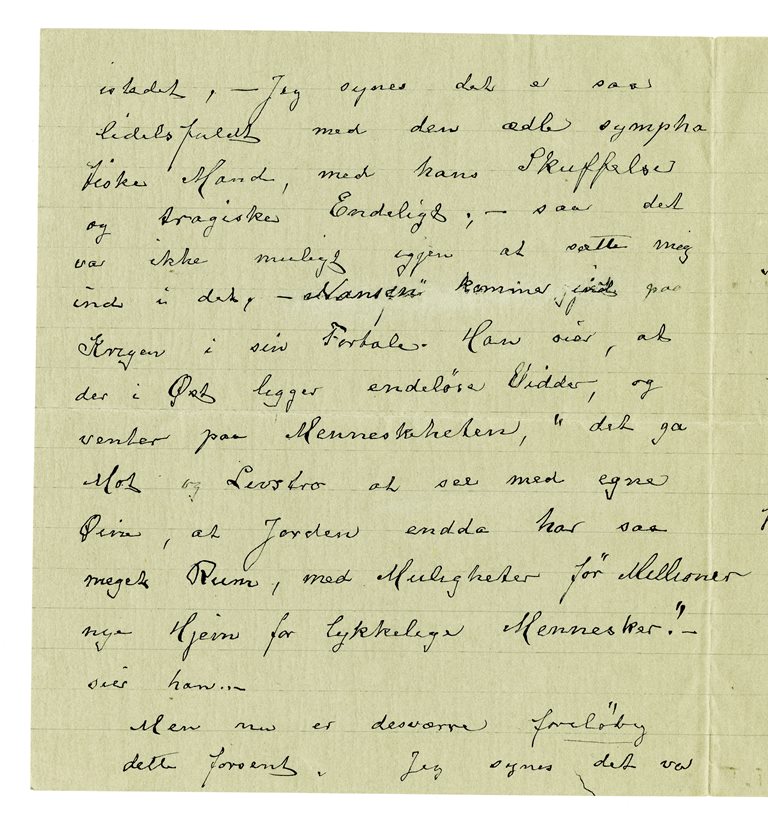 istedet, – Jeg synes det er saa
lidelsfuldt med den ædle sympha
tiske Mand, med hans Skuffelser
og tragiske Endeligt; – saa det
var ikke muligt igjen at sætte mig
ind i det, – Nansen kommer ind paa
Krigen i sin Fortale. Han sier, at
der i Øst ligger endeløse Vidder, og
venter paa Menneskeheten, " det ga
Mot og Livstro at see med egne
Øine, at Jorden endda har saa
meget Rum, med Muligheter för Millioner
nye Hjem for lykkelige Mennesker!" –
sier han. –
Men nu er desværre foreløbig
dette forsent. Jeg synes det var